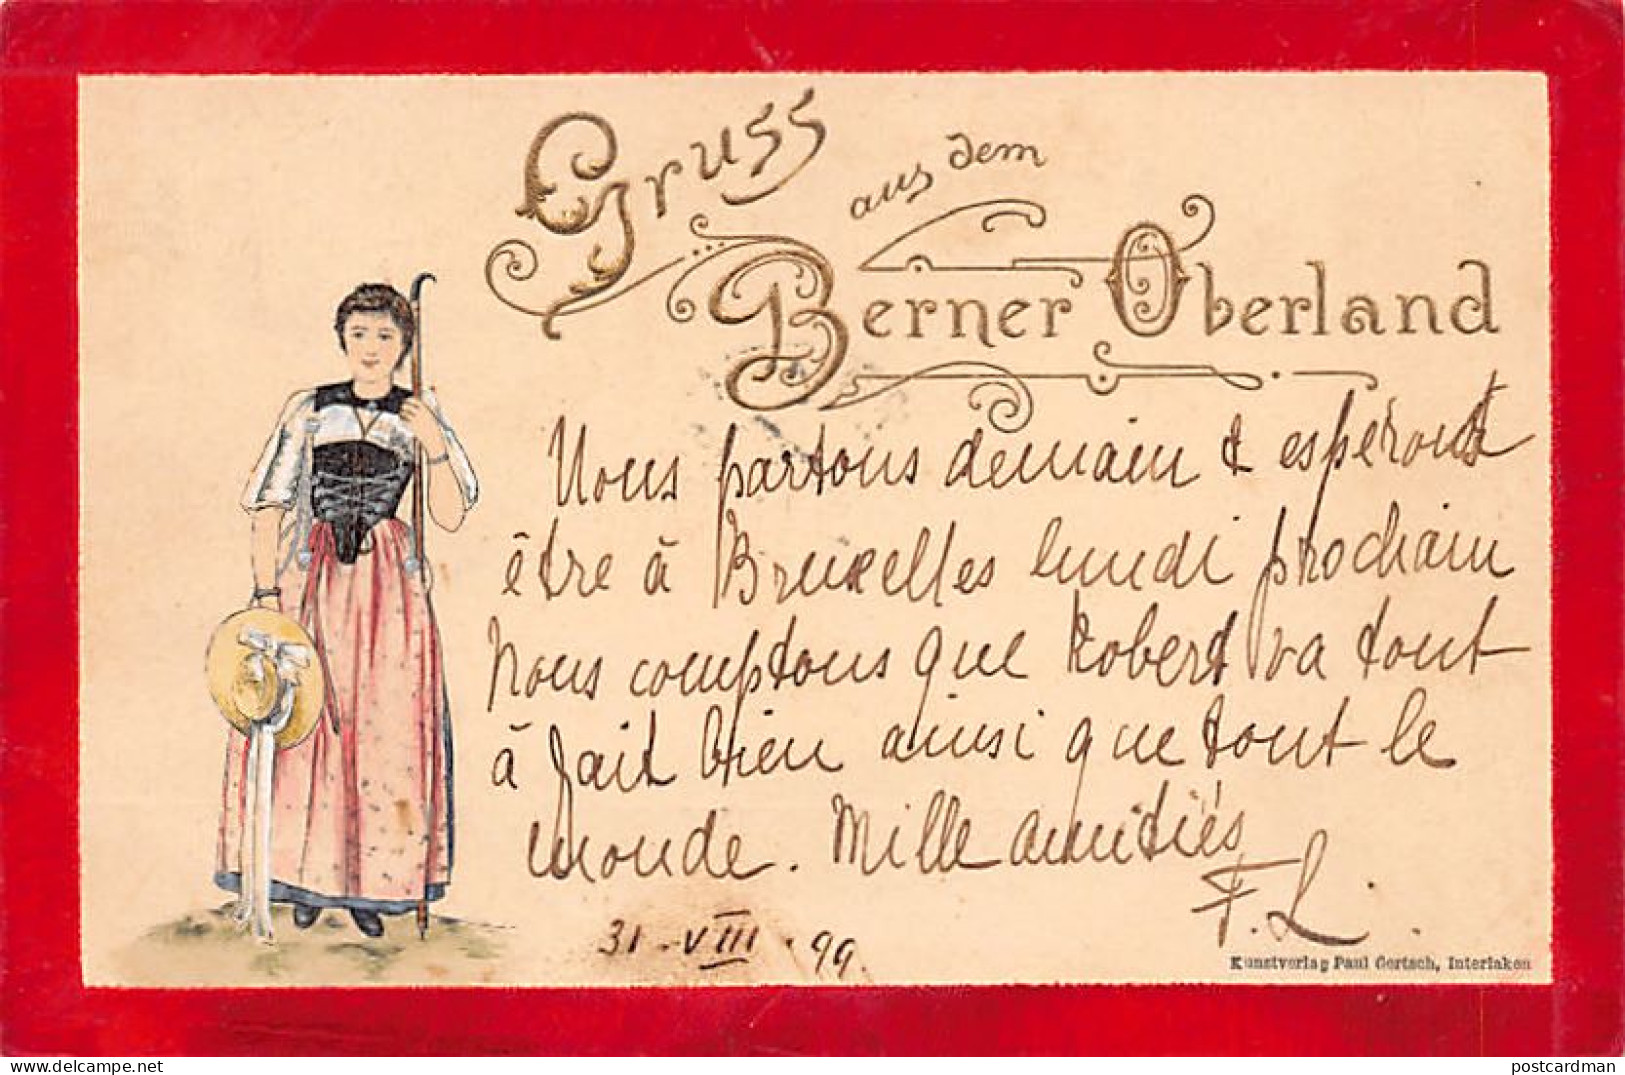 Gruss
aus dem
Berner Oberland
Nous partons demain & espérons
être à Bruxelles lundi prochain
Nous comptons que Robert va tout
à fait bien ainsi que tout le
monde. Mille amitiés
F. L.
31 - VIII - 99
Kunstverlag Paul Gertsch, Interlaken
postcardman